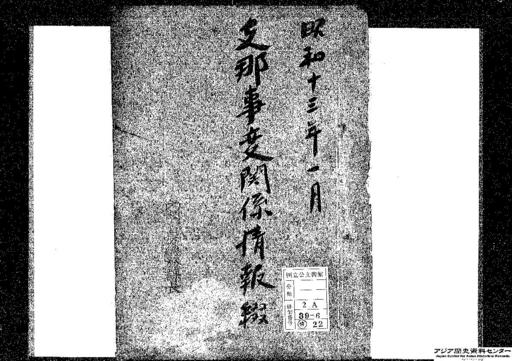 昭和十三年一月
支那事変関係情報綴
国立公文書館
分類
排架番号
2 A
39-6
22
アジア歴史資料センター
Japan Center for Asian Historical Records